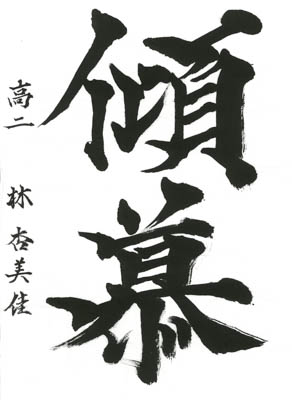 傾慕
高二 林杏美佳